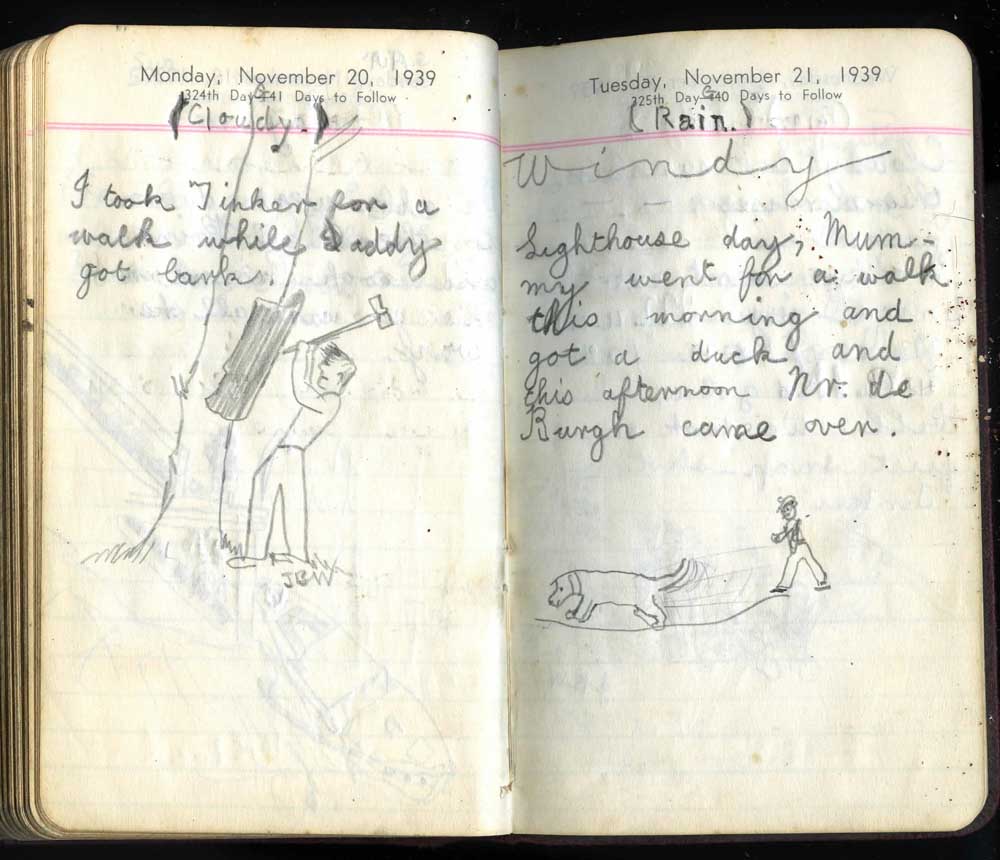 Monday, November 20, 1939
324th Day 41 Days to Follow
(Cloudy.)
I took Tinker for a
walk while Daddy
got bark.
JGW
Tuesday, November 21, 1939
325th Day 40 Days to Follow
(Rain.)
Windy
Lighthouse day, Mum-
my went for a walk
this morning and
got a duck and
this afternoon Mr. De
Burgh came over.